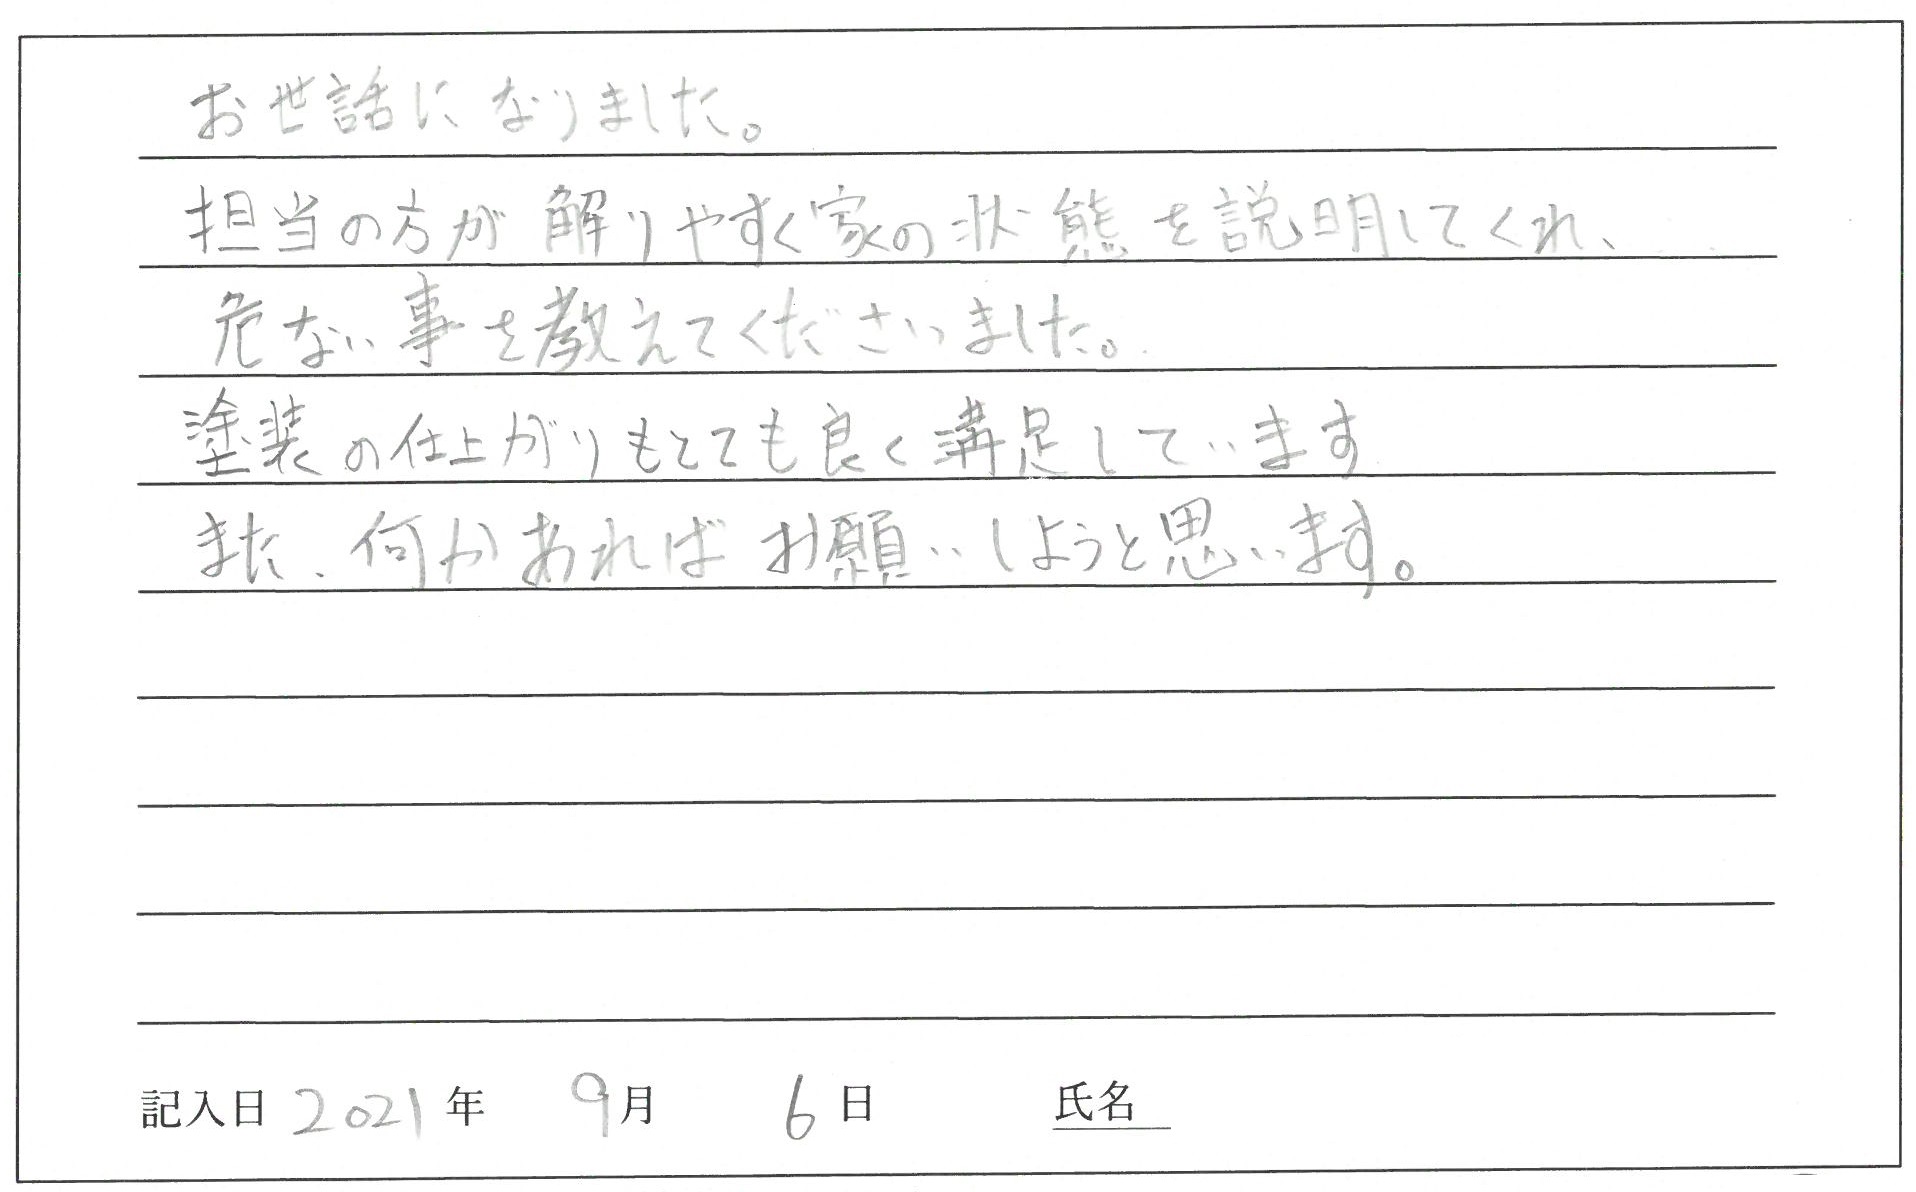 お世話になりました。
担当の方が解りやすく家の状態を説明してくれ、
危ない事を教えてくださいました。
塗装の仕上がりもとても良く満足しています
また、何かあればお願いしようと思います。
記入日 2021年 9月 6日 氏名